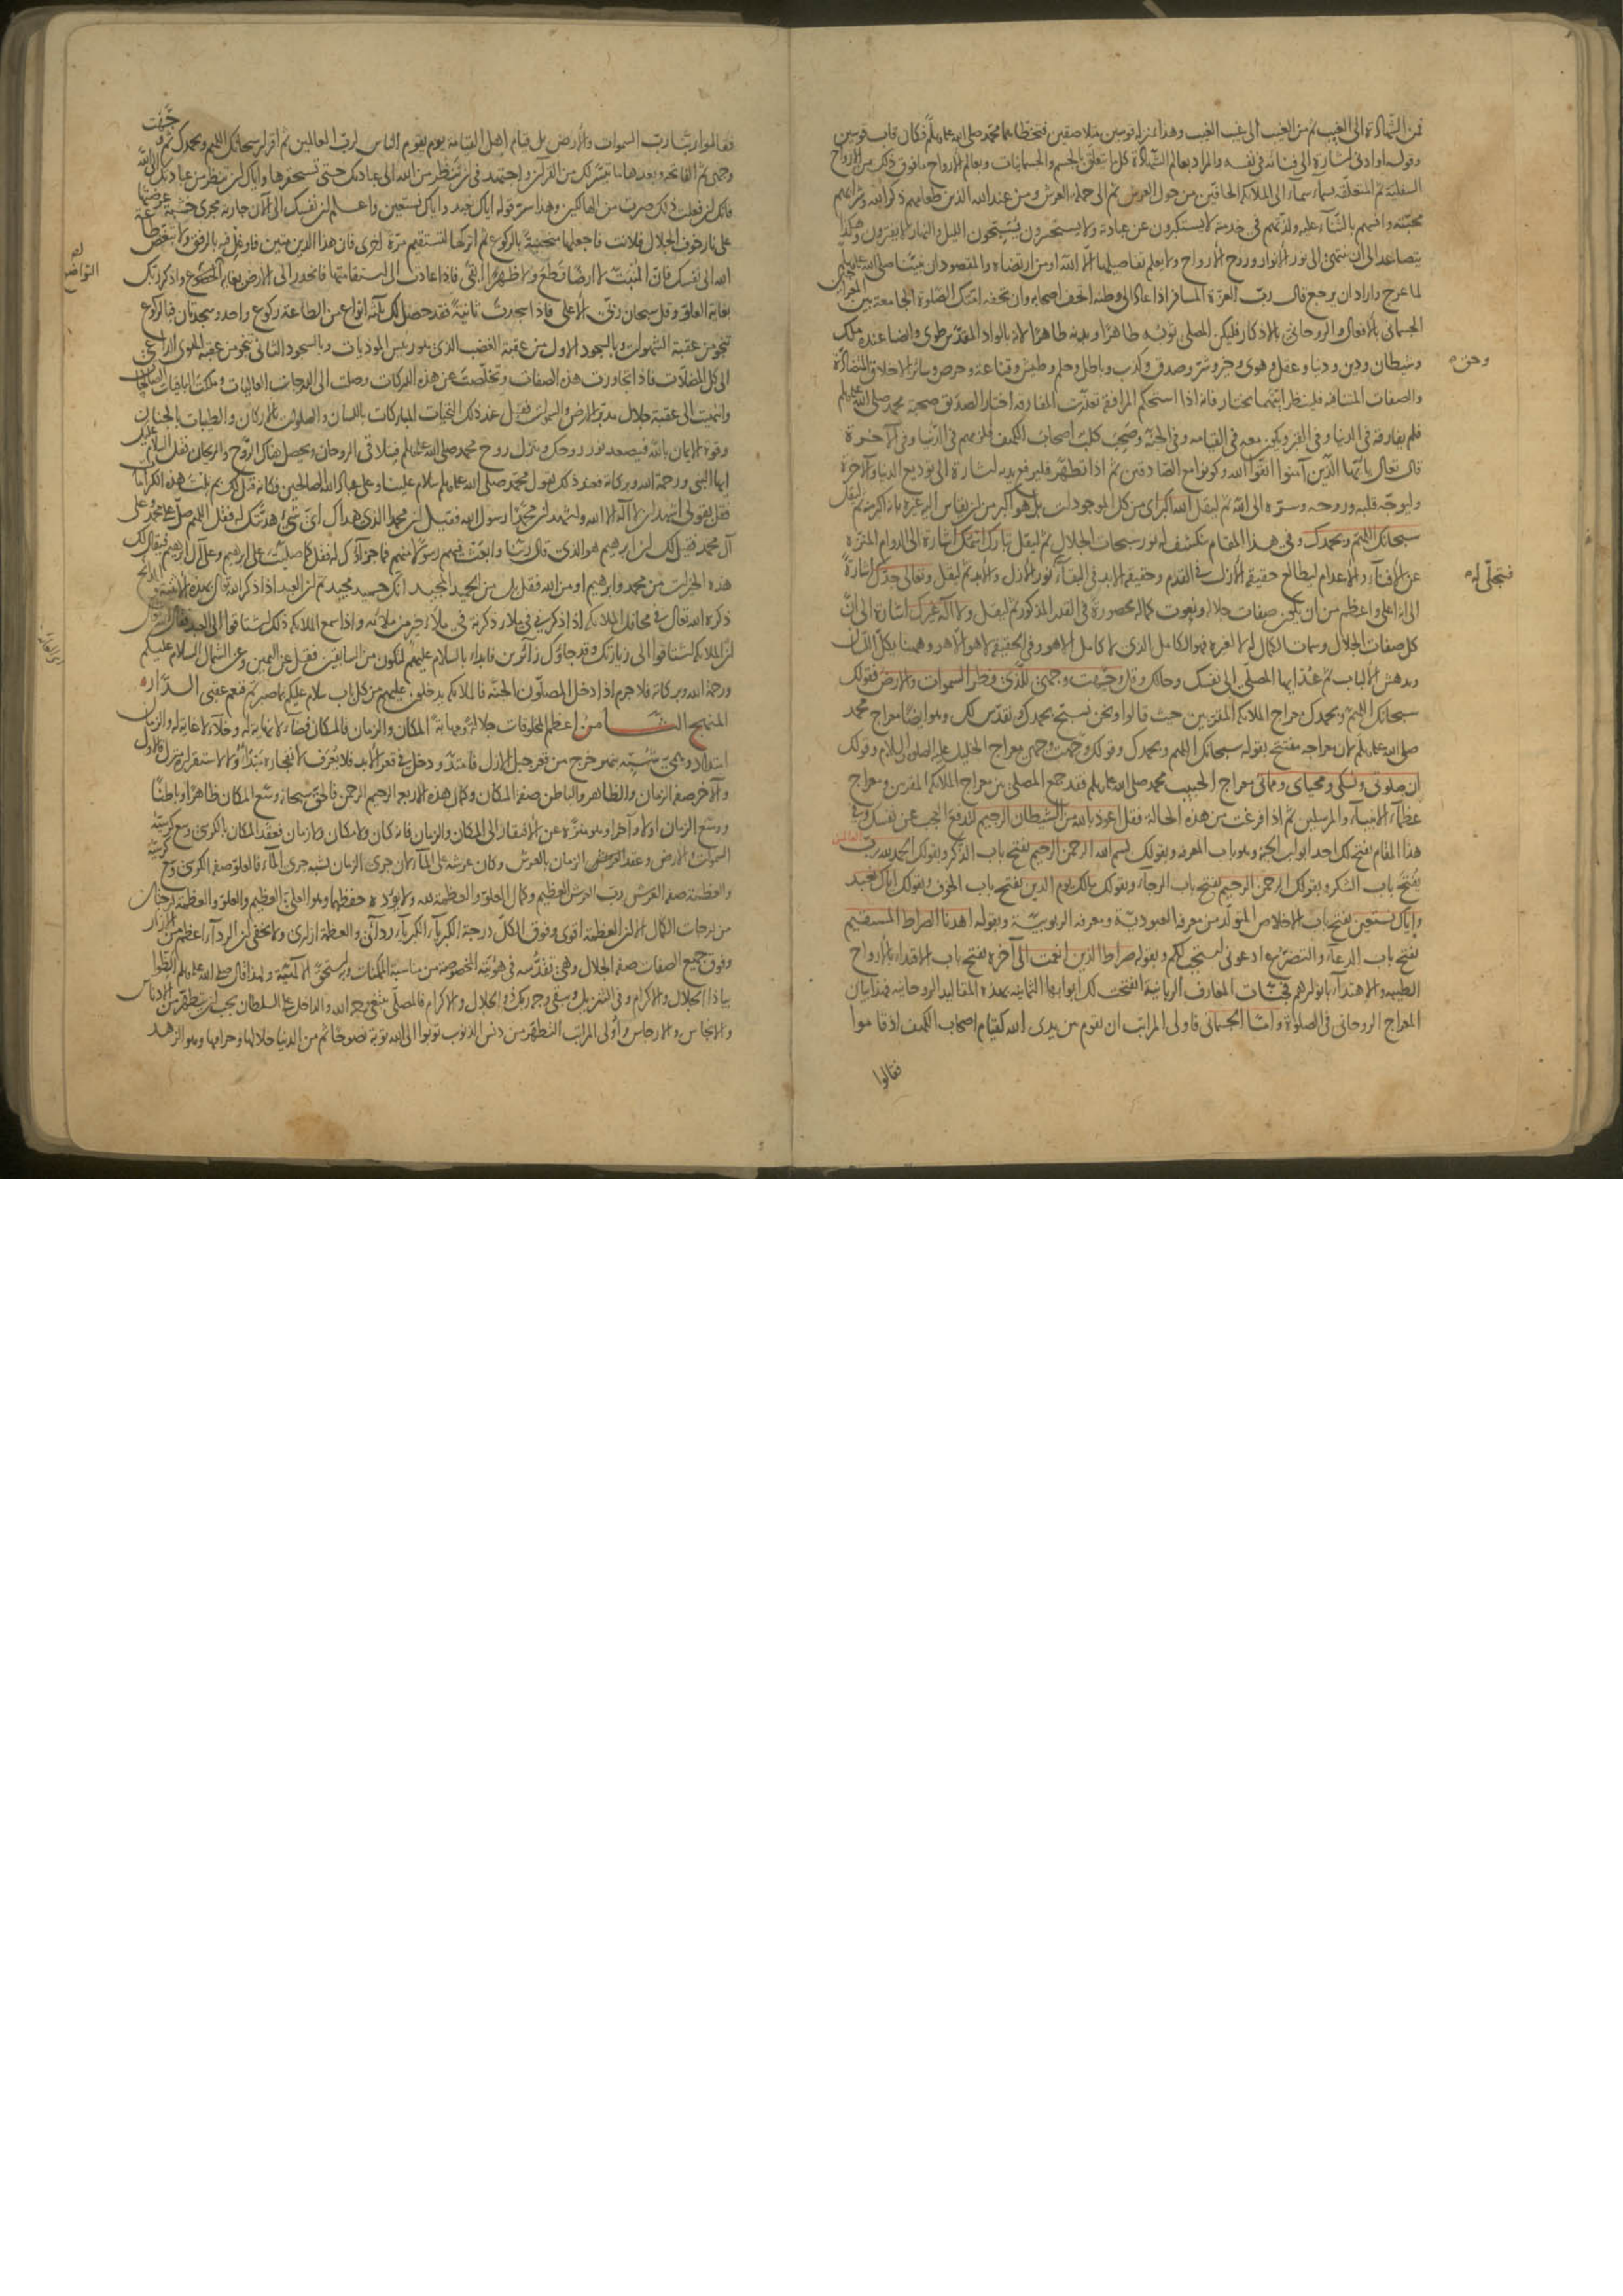 فمن الشهادة الى الغيب ثم من الغيب الى غيب الغيب وهذا بمنزلة قوسين متلاصقين فتخطاهما محمد صلى الله عليه وسلم فكان قاب قوسين
وقوله او ادنى اشارة الى فنائه في نفسه والمراد بعالم الشهادة كل ما يتعلق بالجسم والجسمانيات وبعالم الارواح ما فوق ذلك من الارواح
السفلية ثم المتعلقة بسماء سماء الى الملائكة الحافين من حول العرش ثم الى حملة العرش ومن عند الله الذين طعامهم ذكر الله وشرابهم
محبته وانسهم بالثناء عليه ولذتهم في خدمته لا يستكبرون عن عبادته ولا يستحسرون يسبحون الليل والنهار لا يفترون وهكذا
يتصاعد الى ان ينتهي الى نور الانوار وروح الارواح ولا يعلم تفاصيلها الا الله او من ارتضاه والمقصود ان نبينا صلى الله عليه وسلم
لما عرج واراد ان يرجع قال رب العزة المسافر اذا عاد الى وطنه اتحف اصحابه وان تحفة امتك الصلوة الجامعة بين المعراجين
الجسماني بالافعال والروحاني بالاذكار فليكن المصلي ثوبه طاهرا وبدنه طاهرا لانه بالواد المقدس طوى وايضا عنده ملك
وشيطان ودين ودنيا وعقل وهوى وخير وشر وصدق وكذب وباطل وحلم وطيش وقناعة وحرص وسائر الاخلاق المتضادة
وحق
والصفات المتنافية فلينظر ايتهما يختار فانه اذا استحكم المرافقة تعذرت المفارقة اختار الصديق صحبة محمد صلى الله عليه وسلم
فلم يفارقه في الدنيا وفي القبر ويكون معه في القيامة وفي الجنة وصحب كلب اصحاب الكهف فلزمهم في الدنيا وفي الآخرة
قال تعالى يا ايها الذين آمنوا اتقوا الله وكونوا مع الصادقين ثم اذا تطهر فليرفع يديه اشارة الى توديع الدنيا والآخرة
وليوجه قلبه وروحه وسره الى الله ثم ليقل الله اكبر اي من كل الموجودات بل هو اكبر من ان يقاس اليه غيره بانه اكبر منه ثم ليقل
سبحانك اللهم وبحمدك وفي هذا المقام ينكشف له نور سبحات الجلال ثم ليقل تبارك اسمك اشارة الى الدوام المنزه
عن الافناء والاعدام ليطالع حقيقة الازل في القدم وحقيقة الابد في البقاء نور الازل والابد ثم ليقل وتعالى جدك اشارة
فتجلى له
الى انه اعلى واعظم من ان يكون صفات جلاله ونعوت كماله محصورة في القدر المذكور ثم ليقل ولا اله غيرك اشارة الى ان
كل صفات الجلال وسمات الكمال له لا لغيره فهو الكامل الذي لا كامل الا هو وفي الحقيقة لا هو الا هو وههنا يكل اللسان
ويدهش الالباب ثم عد ايها المصلي الى نفسك وحالك وقل وجهت وجهي للذي فطر السموات والارض فقولك
سبحانك اللهم وبحمدك معراج الملائكة المقربين حيث قالوا ونحن نسبح بحمدك ونقدس لك وهو ايضا معراج محمد
صلى الله عليه وسلم لان معراجه مفتتح بقوله سبحانك اللهم وبحمدك وقولك وجهت وجهي معراج الخليل عليه الصلوة والسلام وقولك
ان صلوتي ونسكي ومحياي ومماتي معراج الحبيب محمد صلى الله عليه وسلم فقد جمع المصلي بين معراج الملائكة المقربين ومعراج
عظماء الانبياء والمرسلين ثم اذا فرغت من هذه الحالة فقل اعوذ بالله من الشيطان الرجيم لتدفع العجب عن نفسك وفي
هذا المقام يفتح لك احد ابواب الجنة وهو باب المعرفة وبقولك بسم الله الرحمن الرحيم يفتح باب الذكر وبقولك الحمد لله رب
العالمين
يفتح باب الشكر وبقولك الرحمن الرحيم يفتح باب الرجاء وبقولك مالك يوم الدين يفتح باب الخوف وبقولك اياك نعبد
واياك نستعين يفتح باب الاخلاص المتولد من معرفة العبودية ومعرفة الربوبية وبقوله اهدنا الصراط المستقيم
يفتح باب الدعاء والتضرع ادعوني استجب لكم وبقوله صراط الذين انعمت الى آخره يفتح باب الاقتداء بالارواح
الطيبة والاهتداء بانوارهم فجنات المعارف الربانية انفتحت لك ابوابها الثمانية بهذه المقاليد الروحانية فهذا بيان
المعراج الروحاني في الصلوة واما الجسماني فاولى المراتب ان تقوم بين يدي الله كقيام اصحاب الكهف اذ قاموا
فقالوا
فقالوا ربنا رب السموات والارض بل قيام اهل القيامة يوم يقوم الناس لرب العالمين ثم اقرا سبحانك اللهم وبحمدك ثم وجهت
وجهي ثم الفاتحة وبعدها ما تيسر لك من القرآن واجتهد في ان تنظر من الله الى عبادتك حتى تستحقرها واياك ان تنظر من عبادتك الى الله
فانك ان فعلت ذلك صرت من الهالكين وهذا سر قوله اياك نعبد واياك نستعين واعلم ان نفسك الى الآن جارية مجرى خشبة عرضتها
على نار خوف الجلال فلانت فاجعلها منحنية بالركوع ثم اتركها لتستقيم مرة اخرى فان هذا الدين متين فاوغل فيه بالرفق ولا تبغض طاعة
الله الى نفسك فان المنبت لا ارضا قطع ولا ظهرا ابقى فاذا عادت الى استقامتها فانحدر الى الارض بغاية الخضوع واذكر ربك
التواضع
بغاية العلو وقل سبحان ربي الاعلى فاذا سجدت ثانية فقد حصل لك ثلثة انواع من الطاعة ركوع واحد وسجدتان فبالركوع
تنجو من عقبة الشهوات وبالسجود الاول من عقبة الغضب الذي هو رئيس الموذيات وبالسجود الثاني تنجو من عقبة الهوى الداعي
الى كل المضلات فاذا تجاوزت هذه الصفات وتخلصت عن هذه الدركات وصلت الى الدرجات العاليات وملكت الباقيات الصالحات
وانتهيت الى عقبة جلال مدبر الارض والسموات فقل عند ذلك التحيات المباركات باللسان والصلوات بالاركان والطيبات بالجنان
وقوة الايمان بالله فيصعد نور روحك وينزل روح محمد صلى الله عليه وسلم فيتلاقى الروحان ويحصل هناك الروح والريحان فقل السلام عليك
ايها النبي ورحمة الله وبركاته فعند ذلك يقول محمد صلى الله عليه وسلم سلام علينا وعلى عباد الله الصالحين فكانه قيل لك بم نلت هذه الكرامات
فقل بقولي اشهد ان لا اله الا الله واشهد ان محمدا رسول الله فقيل ان محمدا الذي هداك اي شيء هديتك له فقل اللهم صل على محمد وعلى
آل محمد فقيل لك ان ابرهيم هو الذي قال ربنا وابعث فيهم رسولا منهم فما جزاؤك له فقل كما صليت على ابرهيم وعلى آل ابرهيم فيقال لك
هذه الخيرات من محمد وابرهيم او من الله فقل بل من الحميد المجيد انك حميد مجيد ثم ان العبد اذا ذكر الله تعالى بهذه الاثنية والمدائح
ذكره الله تعالى في محافل الملائكة اذا ذكرني في ملا ذكرته في ملا خير من ملائه واذا سمع الملائكة ذلك اشتاقوا الى العبد فقال الله
ان الملائكة اشتاقوا الى زيارتك وقد جاؤك زائرين فابدأ بالسلام عليهم لتكون من السابقين فقل عن اليمين وعن الشمال السلام عليكم
ورحمة الله وبركاته فلا جرم اذا دخل المصلون الجنة فالملائكة يدخلون عليهم من كل باب سلام عليكم بما صبرتم فنعم عقبى الدار
المنهج الثامن اعظم المخلوقات جلالة ومهابة المكان والزمان فالمكان فضاء لا نهاية له وخلاء لا غاية له والزمان
امتداد وهمي شبيه بنهر خرج من قعر جبل الازل فامتد ودخل في قعر الابد فلا يعرف لانفجاره مبدأ ولا لاستقراره منزل فالاول
والآخر صفة الزمان والظاهر والباطن صفة المكان وكمال هذه الاربعة الرحمن الرحيم فالحق سبحانه وسع المكان ظاهرا وباطنا
ووسع الزمان اولا وآخرا وهو منزه عن الافتقار الى المكان والزمان فانه كان ولا مكان ولا زمان فعقد المكان بالكرسي وسع كرسيه
السموات والارض وعقد الزمان بالعرش وكان عرشه على الماء لان جري الزمان يشبه جري الماء فالعلو صفة الكرسي وسع كرسيه
والعظمة صفة العرش رب العرش العظيم وكمال العلو والعظمة لله ولا يؤده حفظهما وهو العلي العظيم والعلو والعظمة درجتان
من درجات الكمال الا ان العظمة اقوى وفوق الكل درجة الكبرياء الكبرياء ردائي والعظمة ازاري ولا يخفى ان الرداء اعظم من الازار
وفوق جميع الصفات صفة الجلال وهي تقدسه في هويته المخصوصة عن مناسبة الممكنات وبه استحق الالهية ولهذا قال صلى الله عليه وسلم الظوا
بياذا الجلال والاكرام وفي التنزيل ويبقى وجه ربك ذو الجلال والاكرام فالمصلي يبتغي وجه الله والداخل على السلطان يجب ان يتطهر من الادناس
والانجاس والارجاس واولى المراتب التطهر من دنس الذنوب توبوا الى الله توبة نصوحا ثم من الدنيا حلالها وحرامها وهو الزهد